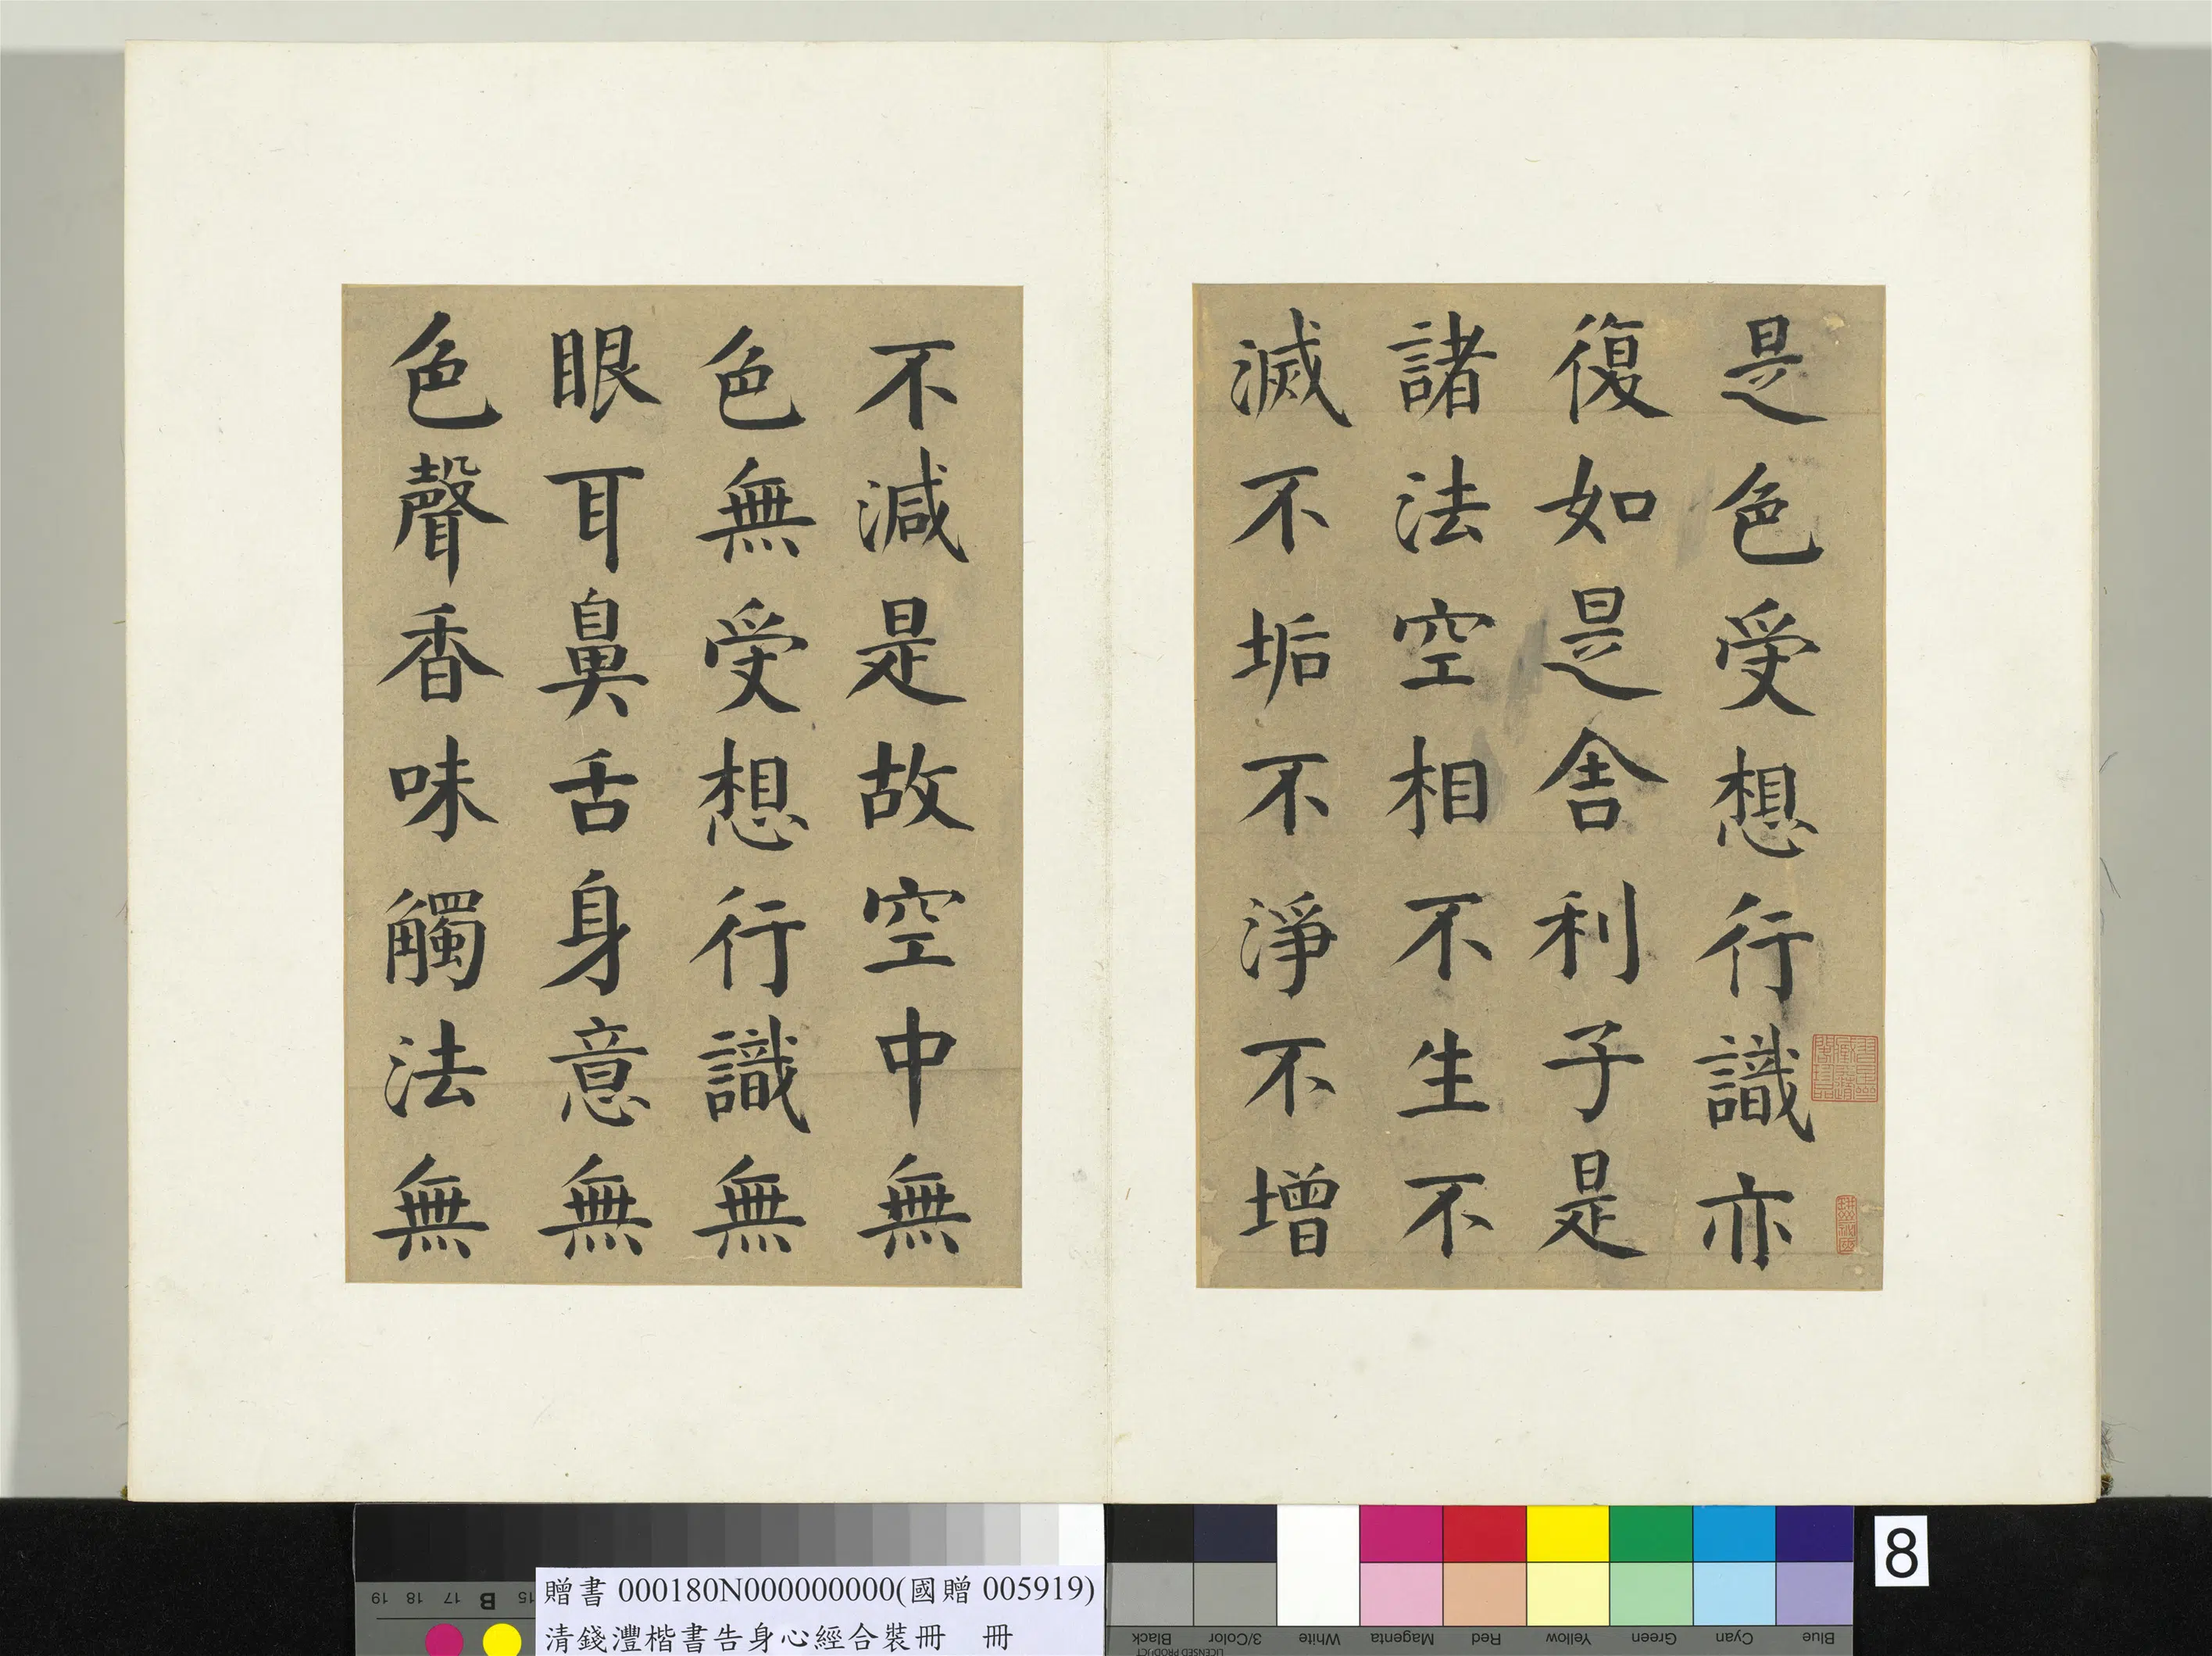 是色受想行識亦
復如是舍利子是
諸法空相不生不
滅不垢不淨不增
不減是故空中無
色無受想行識無
眼耳鼻舌身意無
色聲香味觸法無
8
贈書 000180N000000000(國贈 005919)
清錢灃楷書告身心經合裝冊 冊
19 18 17 B 15
Black 3/Color White Magenta Red Yellow Green Cyan Blue
LICENSED PRODUCT